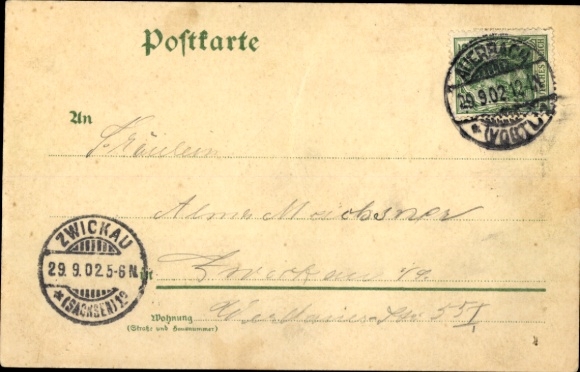 Postkarte
AUERBACH
29.9.02.12
(VOGTL.)
An
Fräulein
Alma
Zwickau
ZWICKAU
29.9.02.5-6N.
*(SACHSEN)1c
in
Wohnung
(Straße und Hausnummer)
55 I